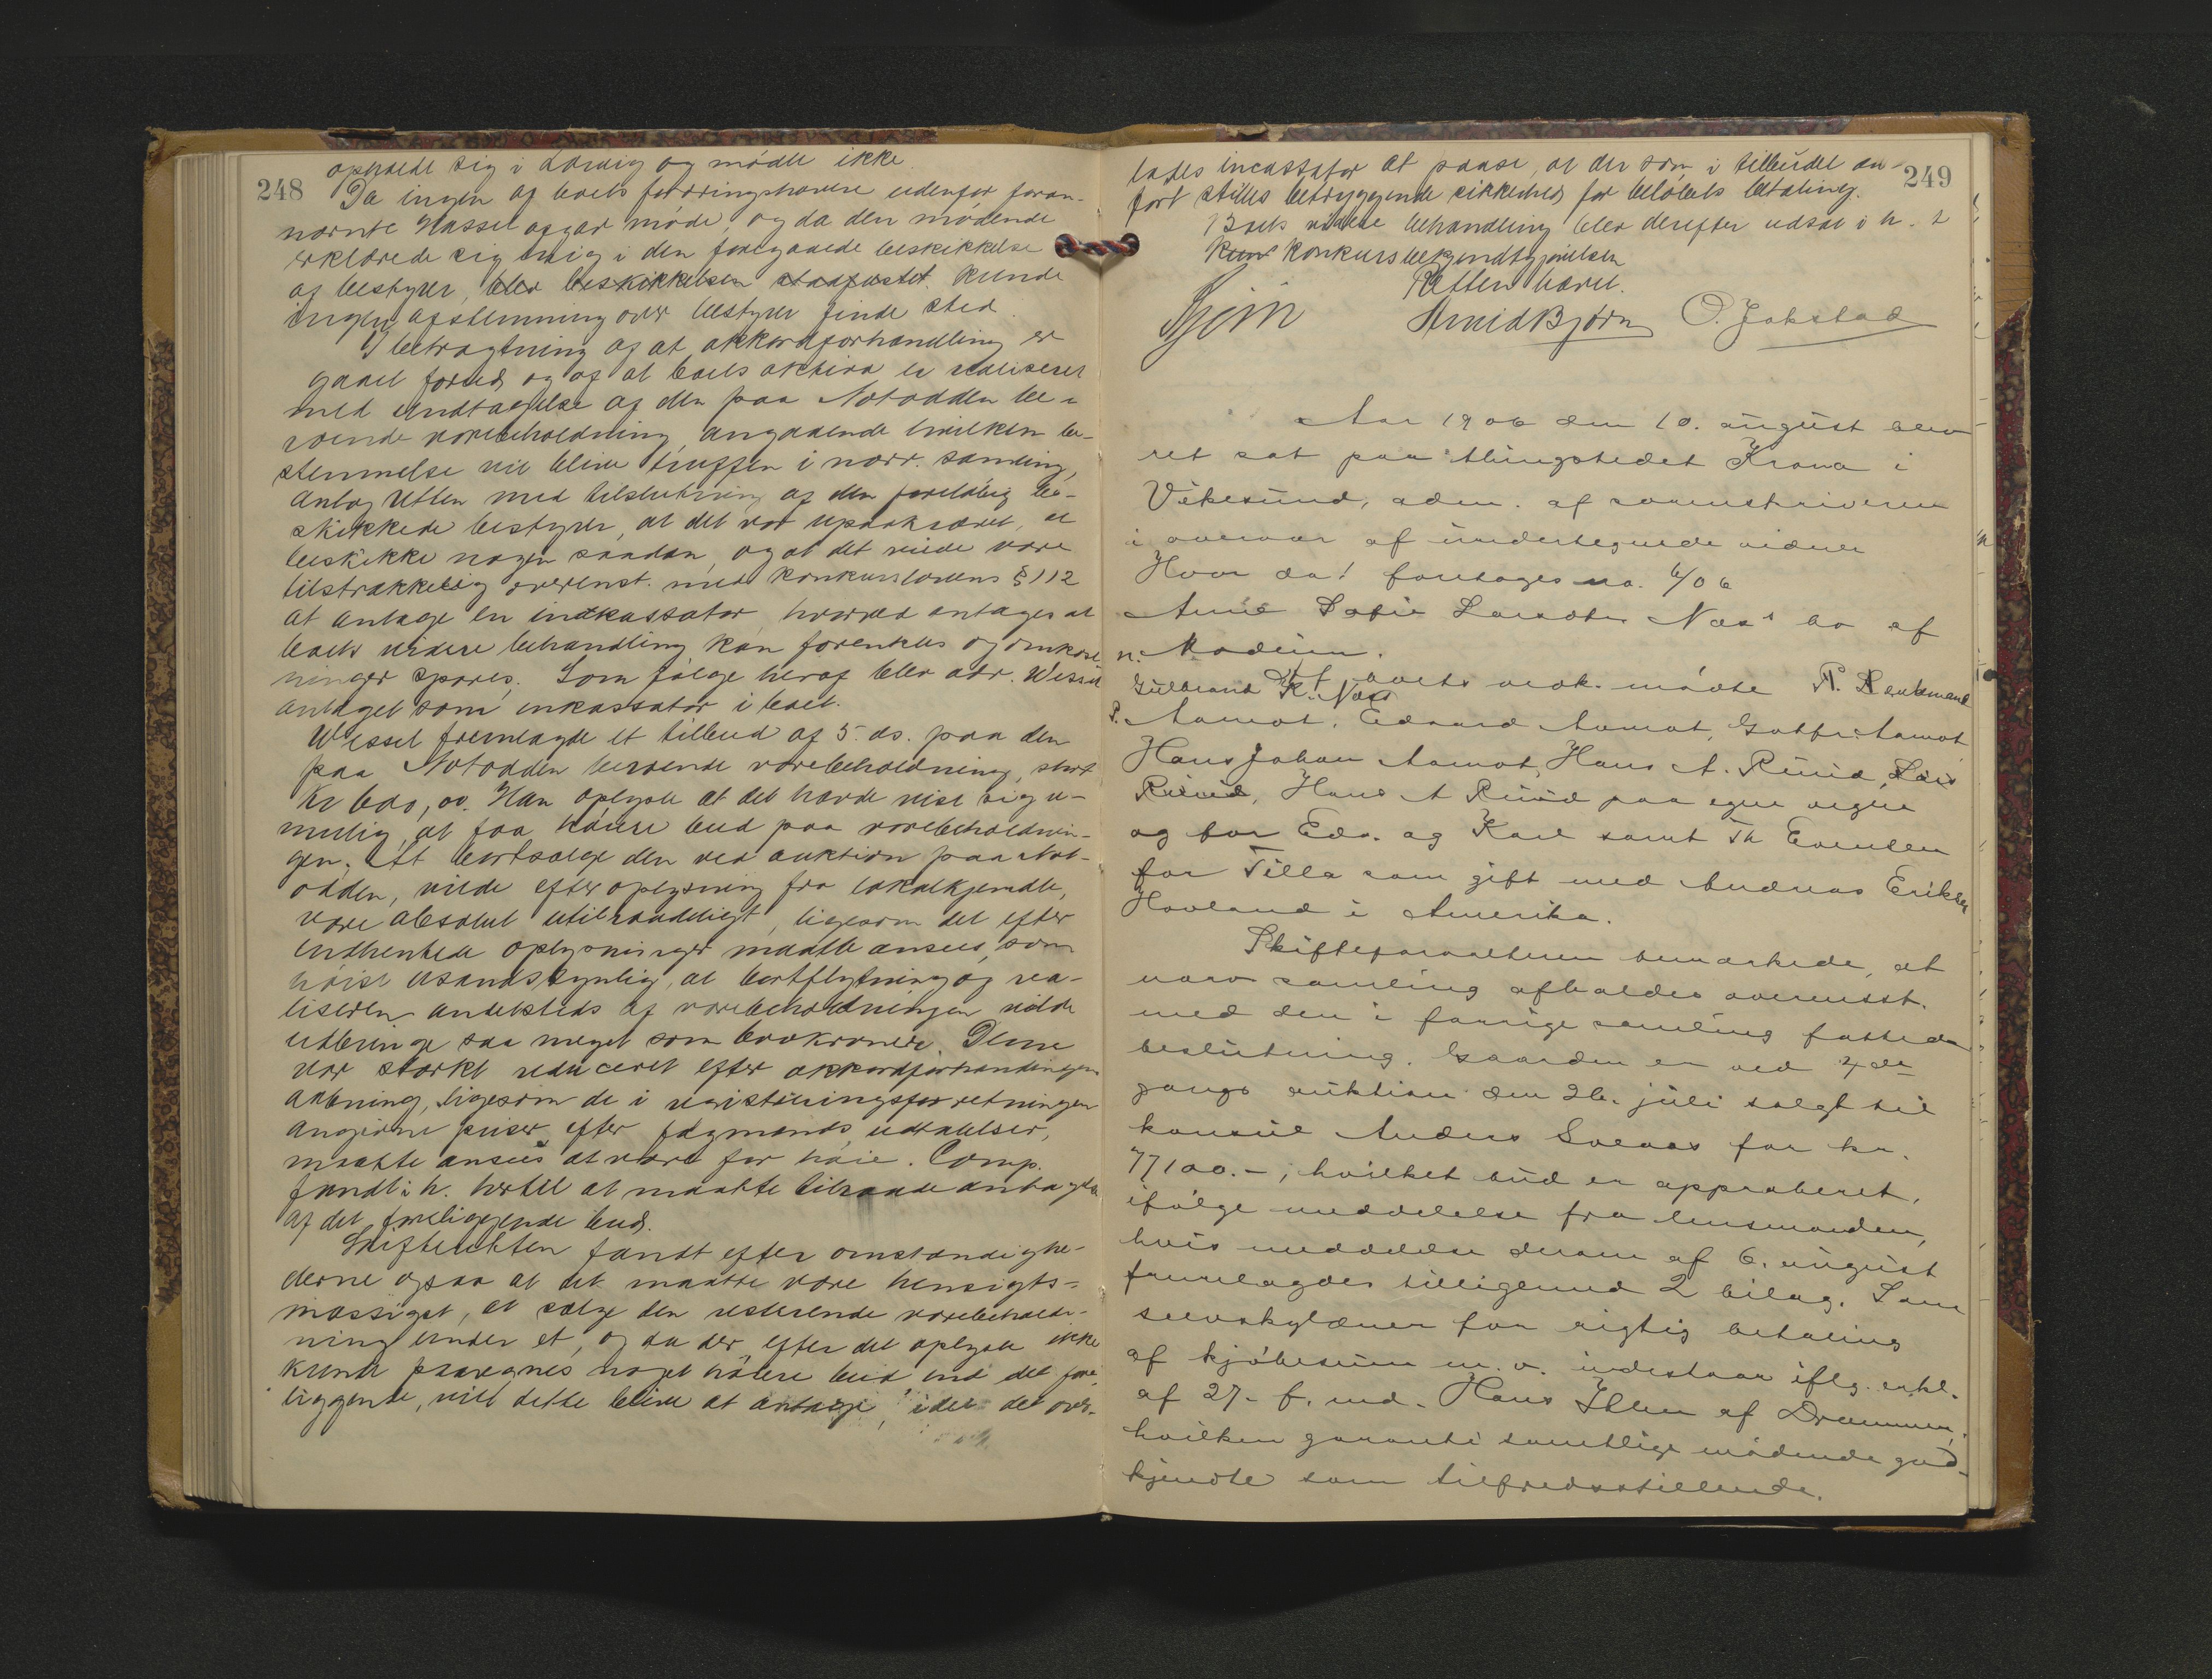 248
opholdt sig i Larvig og mödte ikke.
Da ingen af boets fordringshavere udenfor foran-
nævnte Wassel afgav möde, og da den mödende
erklærede sig enig i den foregaaede beskikkelse
af bestyrer, blev beskikkelsen stadfæstet. kunde
ingen afstemning over bestyrer finde sted.
I betragtning af at akkordforhandling er
gaaet forud og af at boets aktiva er realiseret
med undtagelse af den paa Notodden be-
roende varebeholdning, angaaende hvilken be-
stemmelse vil blive truffen i nærv. samling,
antog retten med tilslutning af den foreløbig be-
skikkede bestyrer, at det var upaakrævet, at
beskikke nogen saadan, og at det vilde være
tilstrækkelig overenst. med konkurslovens § 112
at antage en indkassator, hvorved antages at
boets videre behandling kan forenkles og omkost-
ninger spares. Som følge heraf blev adv. Wessel
antaget som inkassator i boet.
Wessel fremlagde et tilbud af 5. ds. paa den
paa Notodden beroende varebeholdning, stort
Kr 600,00. Han oplyste at det havde vist sig u-
mulig at faa höiere bud paa varebeholdnin-
gen. At bortsælge den ved auktion paa Not-
odden, vilde efter oplysning fra lokalkjendte,
være absolut utilraadeligt, ligesom det efter
indhentede oplysninger maatte ansees som
höist usandsynlig, at bortflytning og rea-
liseren andetsteds af varebeholdningen vilde
udbringe saa meget som 600 kroner. Denne
var stærkt reduceret efter akkordforhandlingens
aabning, ligesom de i registreringsforretningen
angivne priser, efter fagmænds udtalelser,
maatte ansees at være for höie. Comp.
fandt i h. hertil at maatte tilraade antagelse
af det foreliggende bud.
Skifteretten fandt efter omstændighe-
derne ogsaa at det maatte være hensigts-
mæssigst, at sælge den resterende varebehold-
ning under et, og da der efter det oplyste ikke
kunde paaregnes noget höiere bud end det fore-
liggende, vil dette blive at antage, idet det over-
249
lades incassator at paase, at der som i tilbudet an-
fört stilles betryggende sikkerhed for belöbets betaling.
Boets videre behandling blev derefter udsat i h. t
konkursbekjendtgjörelsen
Retten hævet.
Arvid Bjørn O. Jokstad
Aar 1906 den 10. august blev
ret sat paa thingstedet Krona i
Vikesund, adm. af sorenskriveren
i overvær af undertegnede vidner
Hvor da! foretoges no. 6/06
Anne Sofie Larsdtr Næs's bo af
n. Modum.
I boets vedk. mödte
Gulbrand K. Næs
P. Aamot, Edvard Aamot, Gotfr. Aamot
Hans Johan Aamot, Hans A. Ruud, Lars
Ruud, Hans A Ruud paa egne vegne
og for Edv. og Karl samt Th Evensen
for Tilla som gift med Andreas Eriksen
Hovland i Amerika.
Skifteforvalteren bemærkede, at
nærv samling afholdes overensst.
med den i forrige samling fattede
beslutning. Gaarden er ved 4de
gangs auktion den 26. juli solgt til
konsul Anders Svaas for kr.
77100.-, hvilket bud er approberet,
ifölge meddelelse fra lensmanden,
hvis meddelelse derom af 6. august
fremlagdes tilligemed 2 bilag. Som
selvskyldner for rigtig betaling
af kjöbesum m. v. indestaar iflg. erkl.
af 27. f. md. Hans Ihlen af Drammen,
hvilken garanti samtlige mödende god-
kjendte som tilfredsstillende.